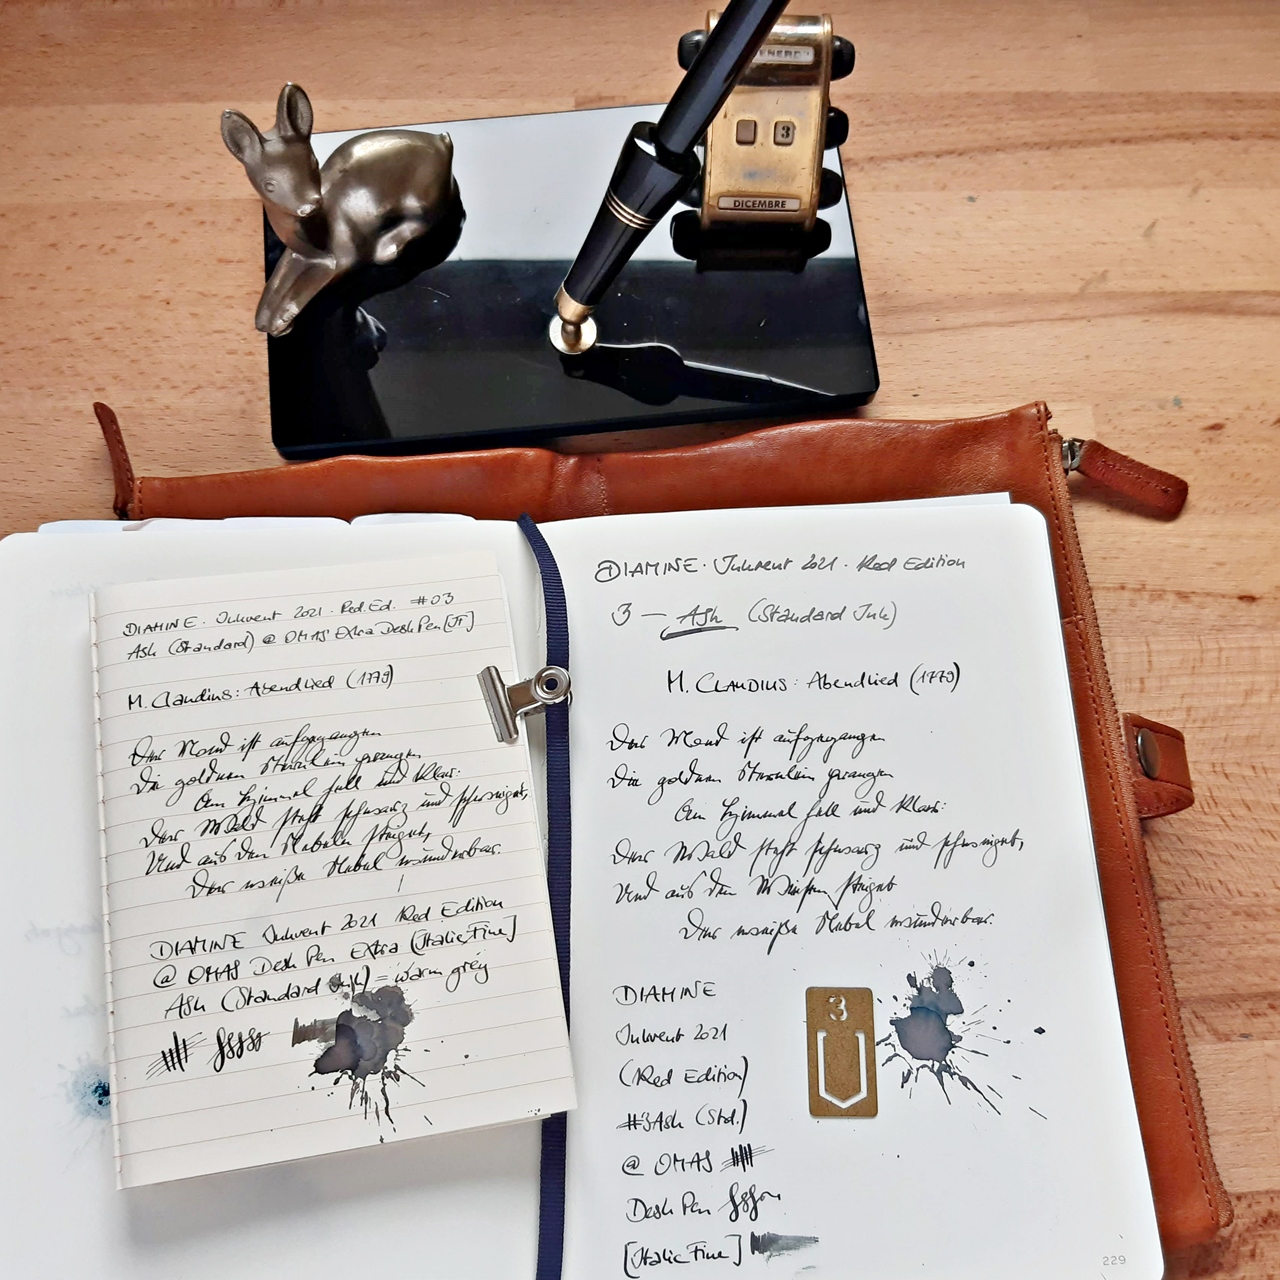 VENERDI
3
DICEMBRE
DIAMINE · Inkvent 2021 · Red. Ed. #03
Ash (Standard) @ OMAS Extra Desk Pen [It]
M. Claudius: Abendlied (1779)
Der Mond ist aufgegangen
Die goldnen Sternlein prangen
Am Himmel hell und klar:
Der Wald steht schwarz und schweiget,
Und aus den Nebeln steiget,
Der weiße Nebel wunderbar.
DIAMINE Inkvent 2021 Red Edition
@ OMAS Desk Pen Extra [Italic, Fine]
Ash (Standard Ink) = warm grey
DIAMINE · Inkvent 2021 · Red Edition
3 — Ash (Standard Ink)
M. CLAUDIUS: Abendlied (1779)
Der Mond ist aufgegangen
Die goldnen Sternlein prangen
Am Himmel hell und klar:
Der Wald steht schwarz und schweiget,
Und aus den Wiesen steiget
Der weiße Nebel wunderbar.
DIAMINE
Inkvent 2021
(Red Edition)
#3 Ash (Std.)
@ OMAS
Desk Pen
[Italic, Fine]
3
229